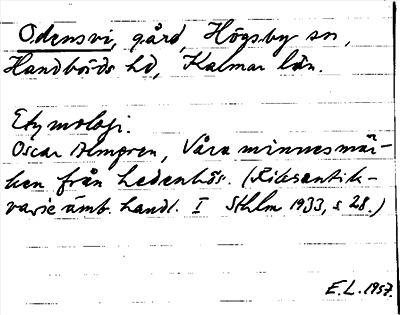 Odensvi, gård, Högsby sn,
Handbörds hd, Kalmar län.
Etymologi.
Oscar Almgren, Våra minnesmär-
ken från hedenhös. (Riksantik-
varieämb. handl. I Sthlm 1933, s 28.)
E.L. 1957.